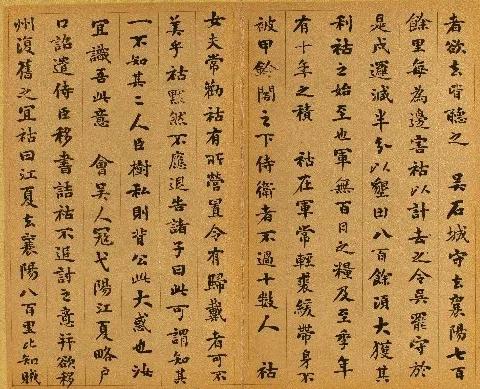 者欲去皆聽之 吳石城守去襄陽七百
餘里每為邊害祜以計去之令吳罷守於
是戍邏減半分以墾田八百餘頃大獲其
利祜之始至也軍無百日之糧及至季年
有十年之積 祜在軍常輕裘緩帶身不
被甲鈴閤之下侍衛者不過十數人 祜
女夫常勸祜有所營置令有歸戴者可不
美乎祜默然不應退告諸子曰此可謂知其
一不知其二人臣樹私則背公此大惑也汝
宜識吾此意 會吳人寇弋陽江夏略戶
口詔遣侍臣移書詰祜不追討之意并欲移
州復舊之宜祜曰江夏去襄陽八百里比知賊